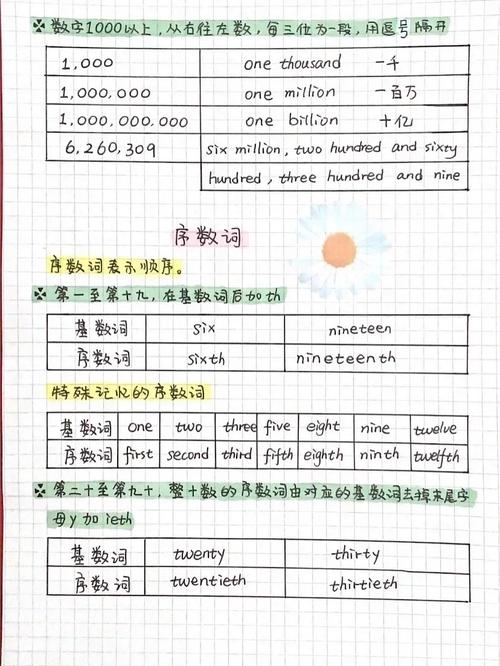 数字1000以上,从右往左数,每三位为一段,用逗号隔开
1,000 one thousand 一千
1,000,000 one million 一百万
1,000,000,000 one billion 十亿
6,260,309 six million, two hundred and sixty
hundred, three hundred and nine
序数词
序数词表示顺序。
第一至第十九,在基数词后加th
基数词 six nineteen
序数词 sixth nineteenth
特殊记忆的序数词
基数词 one two three five eight nine twelve
序数词 first second third fifth eighth ninth twelfth
第二十至第九十,整十数的序数词由对应的基数词去掉末尾字
母y加ieth
基数词 twenty thirty
序数词 twentieth thirtieth